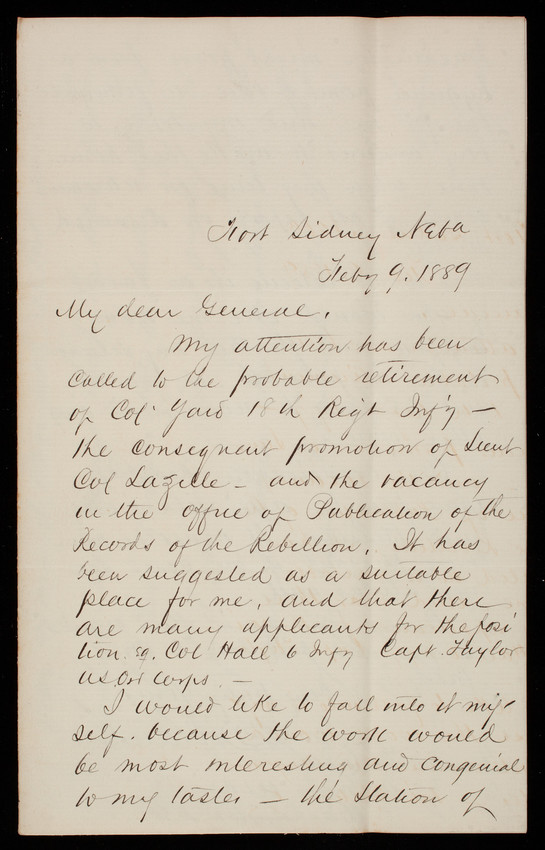 Fort Sidney Neba
Feby 9. 1889
My dear General,
My attention has been
called to the probable retirement
of Col. Yard 18th Regt Inf'y —
the consequent promotion of Lieut
Col Lazelle — and the vacancy
in the office of Publication of the
Records of the Rebellion. It has
been suggested as a suitable
place for me, and that there
are many applicants for the posi
tion. eg. Col Hall 6 Infy Capt. Taylor
US Ord Corps. —
I would like to fall into it my-
self. because the work would
be most interesting and congenial
to my tastes — the Station of